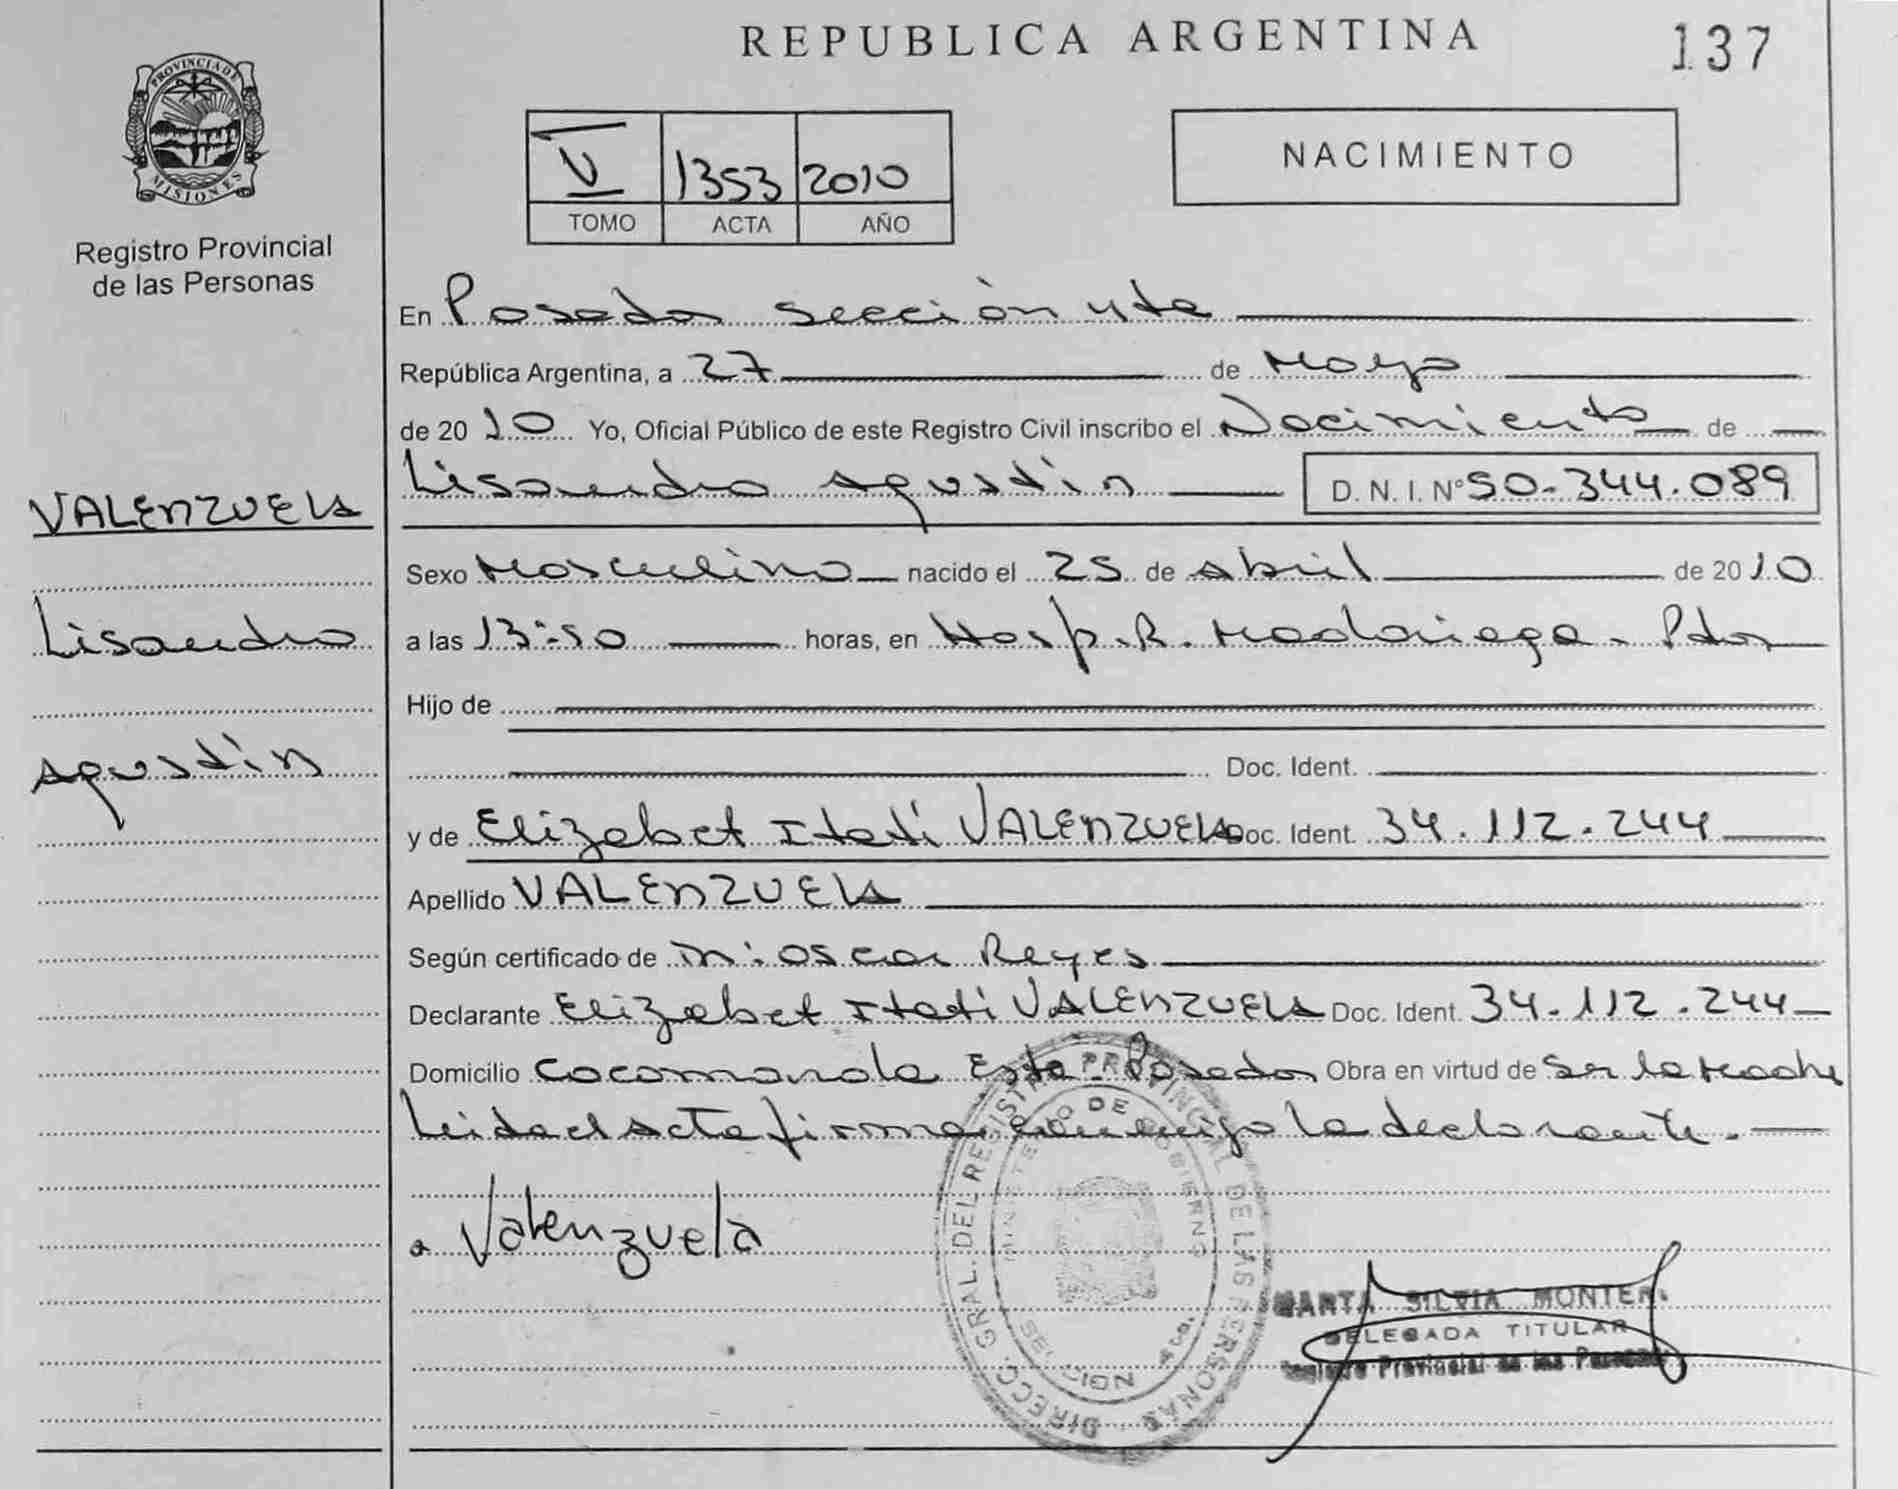 REPUBLICA ARGENTINA
137
PROVINCIA DE MISIONES
Registro Provincial
de las Personas
V 1353 2010
TOMO ACTA AÑO
NACIMIENTO
En Posadas sección 4ta
República Argentina, a 27 de Mayo
de 2010 Yo, Oficial Público de este Registro Civil inscribo el Nacimiento de
Lisandro Agustín D. N. I. Nº 50.344.089
VALENZUELA
Lisandro
Agustín
Sexo Masculino nacido el 25 de Abril de 2010
a las 13:50 horas, en Hosp. R. Madariaga. Pdas
Hijo de
Doc. Ident.
y de Elizabet Itatí VALENZUELA Doc. Ident. 34.112.244
Apellido VALENZUELA
Según certificado de Oscar Reyes
Declarante Elizabet Itatí VALENZUELA Doc. Ident. 34.112.244
Domicilio Cocomarola Este Posadas Obra en virtud de Ser la Madre
Leida el Acta firma conmigo la declarante.
Valenzuela
DIRECC. GRAL. DEL REGISTRO PROVINCIAL DE LAS PERSONAS
MINISTERIO DE GOBIERNO
SECCION 4ta.
MARTA SILVIA
DELEGADA TITULAR
Registro Provincial de las Personas